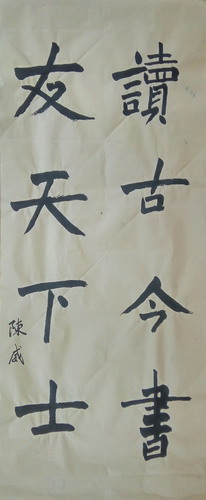 讀古今書
友天下士
陳威